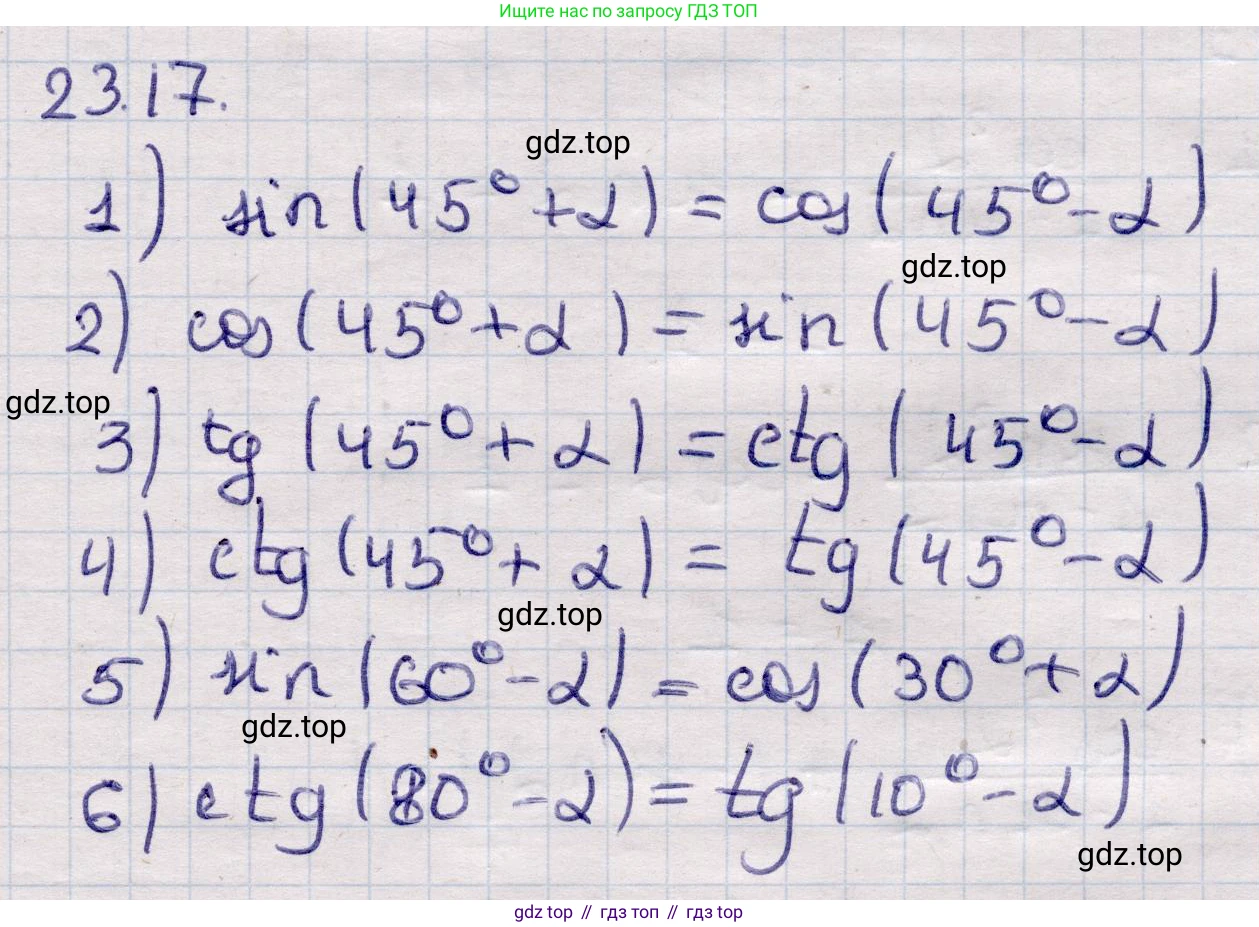 Ищите нас по запросу ГДЗ ТОП
23.17.
gdz.top
1) sin(45° + α) = cos(45° - α)
gdz.top
2) cos(45° + α) = sin(45° - α)
gdz.top
3) tg(45° + α) = ctg(45° - α)
4) ctg(45° + α) = tg(45° - α)
gdz.top
5) sin(60° - α) = cos(30° + α)
gdz.top
6) ctg(80° - α) = tg(10° - α)
gdz.top
gdz top // гдз топ // gdz top